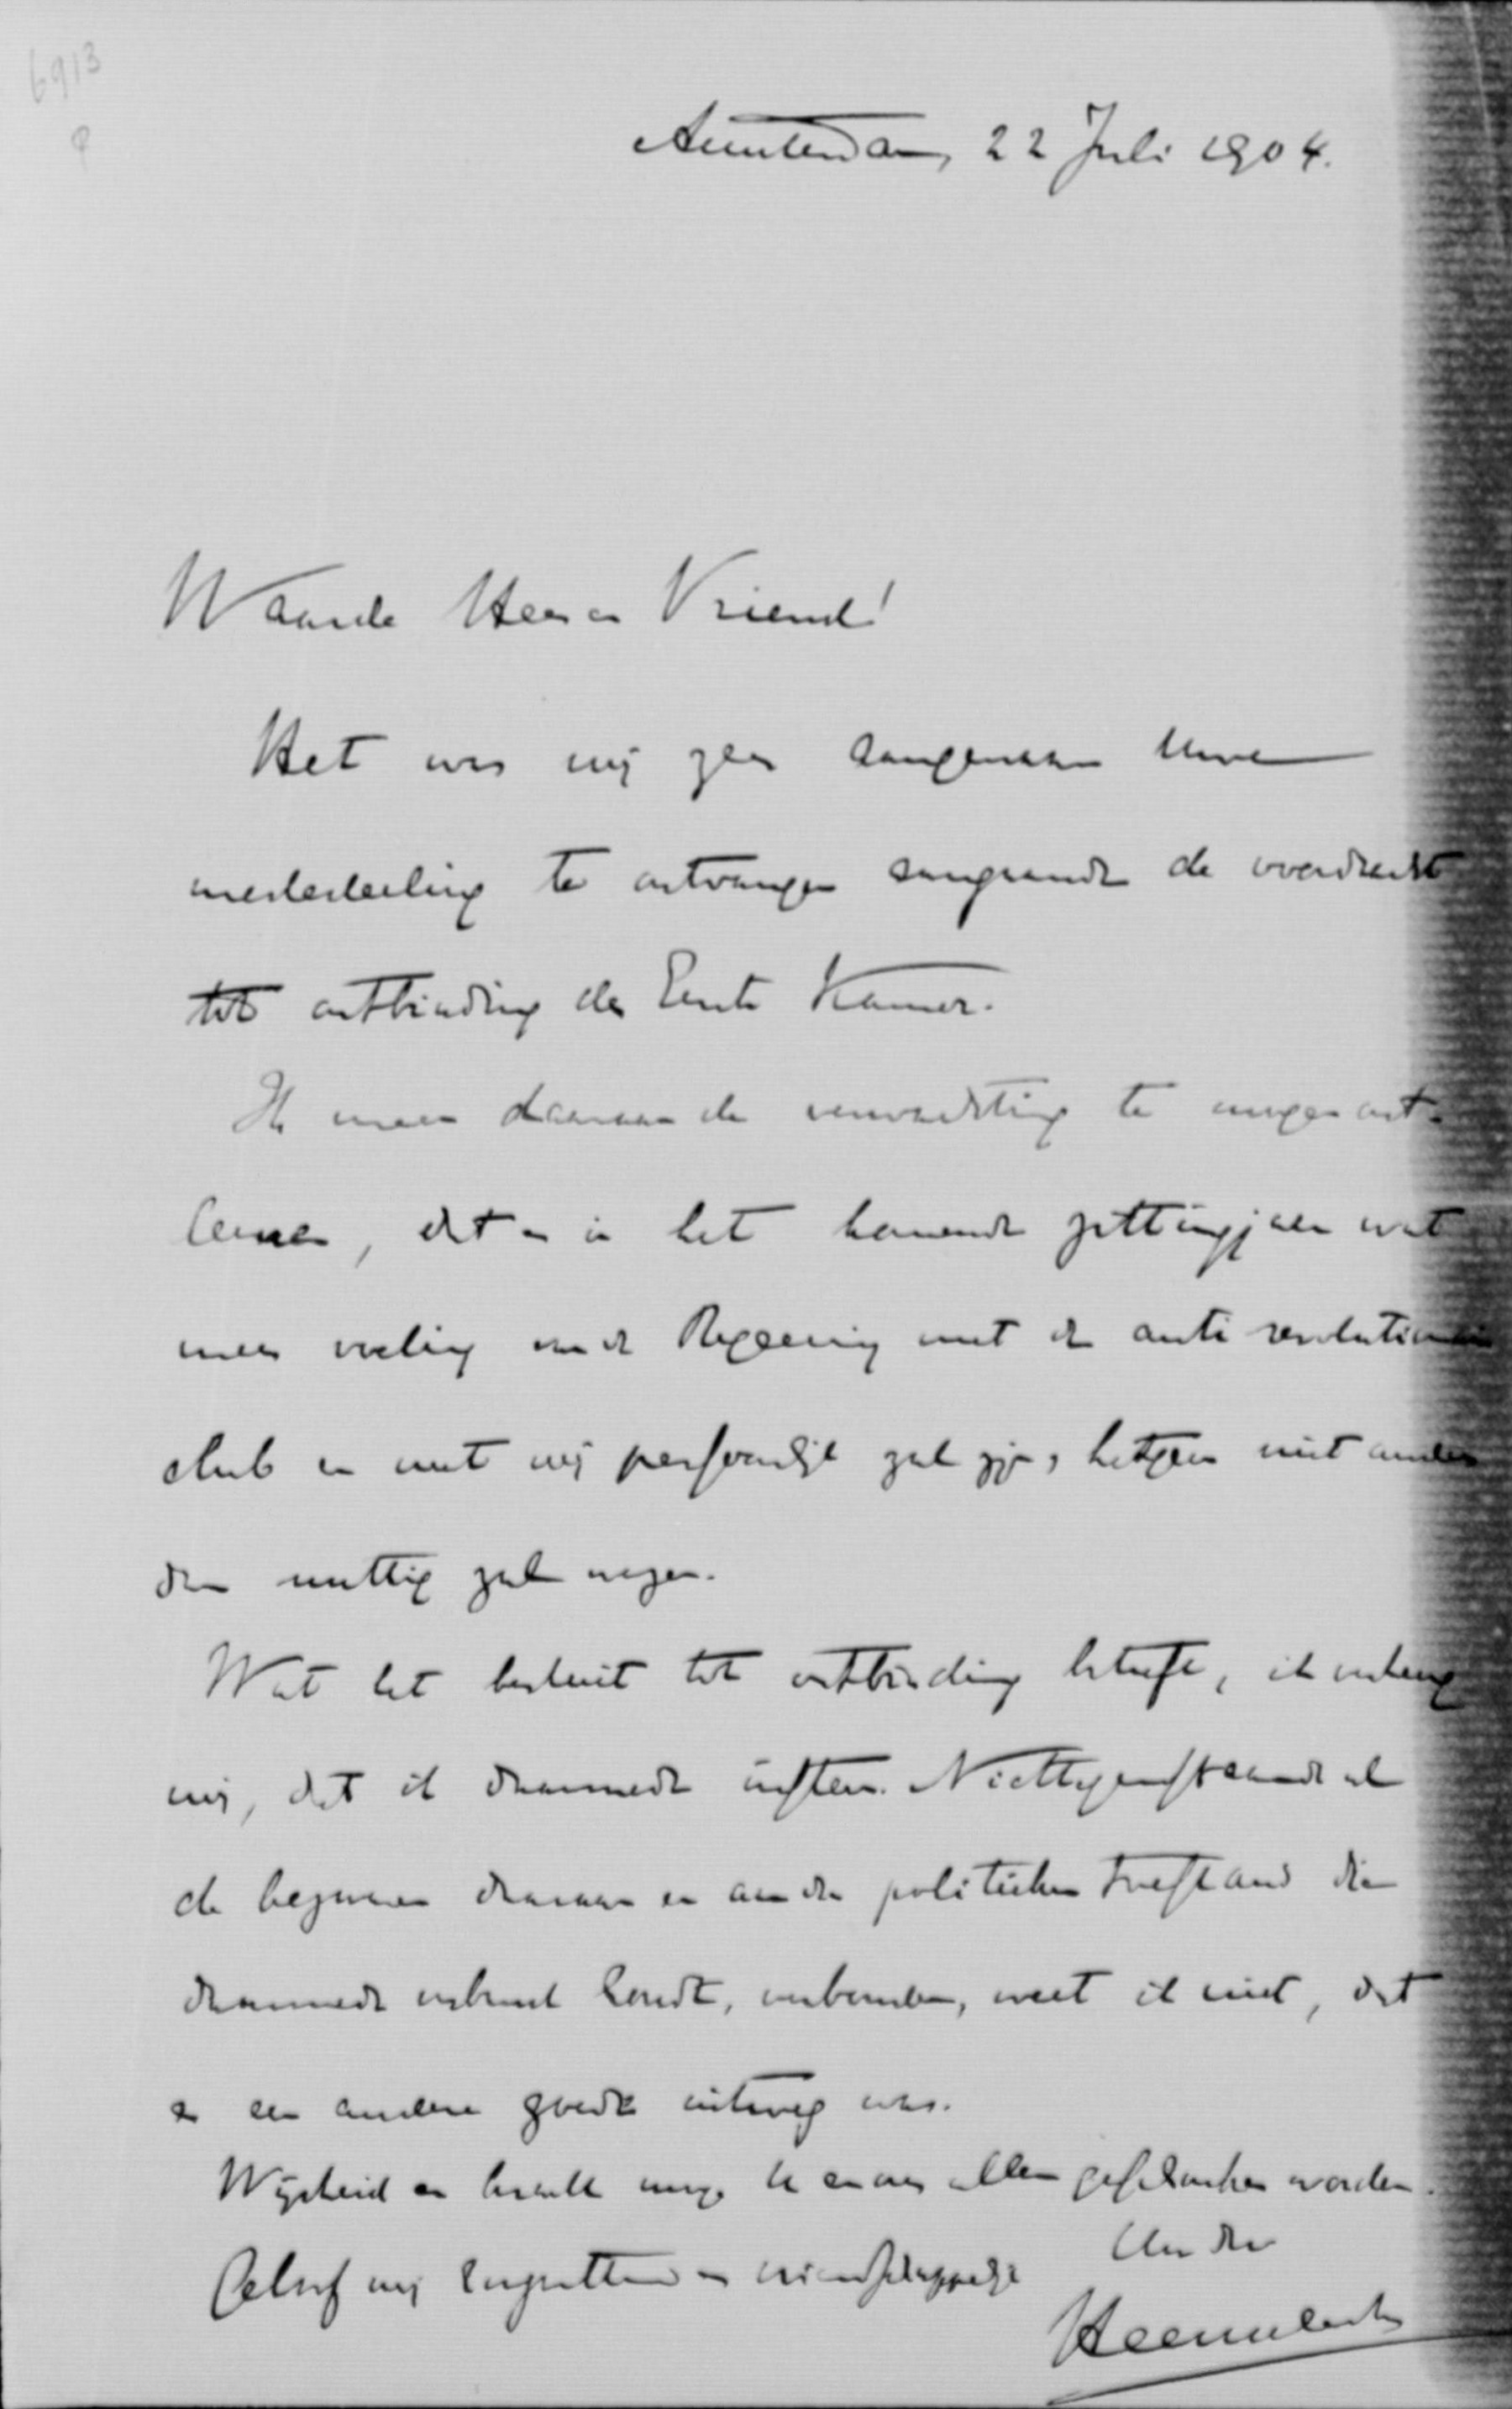 6913
Amsterdam, 22 Juli 1904.
Waarde Heer en Vriend!
Het was mij zeer aangenaam Uwe
mededeeling te ontvangen aangaande de voordracht
tot ontbinding der Eerste Kamer.
Ik meen daaraan de verwachting te mogen ont-
leenen, dat er in het komende zittingjaar wat
meer voeling van de Regeering met de anti revolutionaire
club en met mij persoonlijk zal zijn, hetgeen niet anders
dan nuttig zal mogen.
Wat het besluit tot ontbinding betreft, ik verheug
mij, dat ik daarmede instem. Niettegenstaande al
de bezwaren daaraan en aan den politieken toestand die
daarmede verband houdt, verbonden, weet ik niet, dat
er een andere goede uitweg was.
Wijsheid en kracht moge U en ons allen geschonken worden.
Geloof mij hoogachtend en vriendschappelijk
Uw dw
Heemskerk